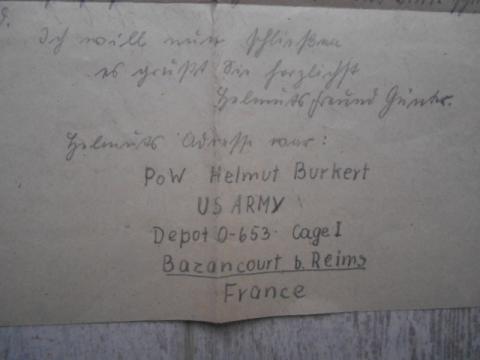 d.
Ich will nun schließen
es grüßt Sie herzlichst
Helmuts Freund Günter.
Helmuts Adresse war:
PoW Helmut Burkert
US ARMY
Depot O-653 Cage I
Bazancourt b. Reims
France